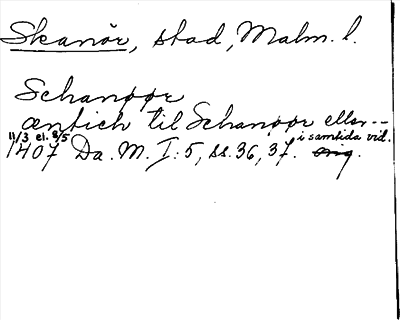 Skanör, stad, Malm. l.
Schanøør
æntich til Schanøør eller --
11/3 el. 8/5 i samtida vid.
1407 Da. M. I:5, ss. 36, 37. orig.